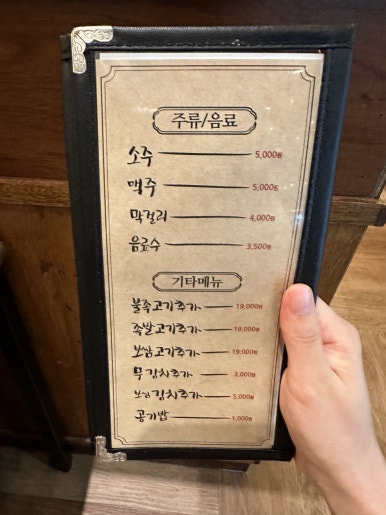 주류/음료
소주 5,000원
맥주 5,000원
막걸리 4,000원
음료수 3,500원
기타메뉴
불족고기추가 19,000원
족발고기추가 19,000원
보쌈고기추가 19,000원
무김치추가 3,000원
보쌈김치추가 5,000원
공기밥 1,000원